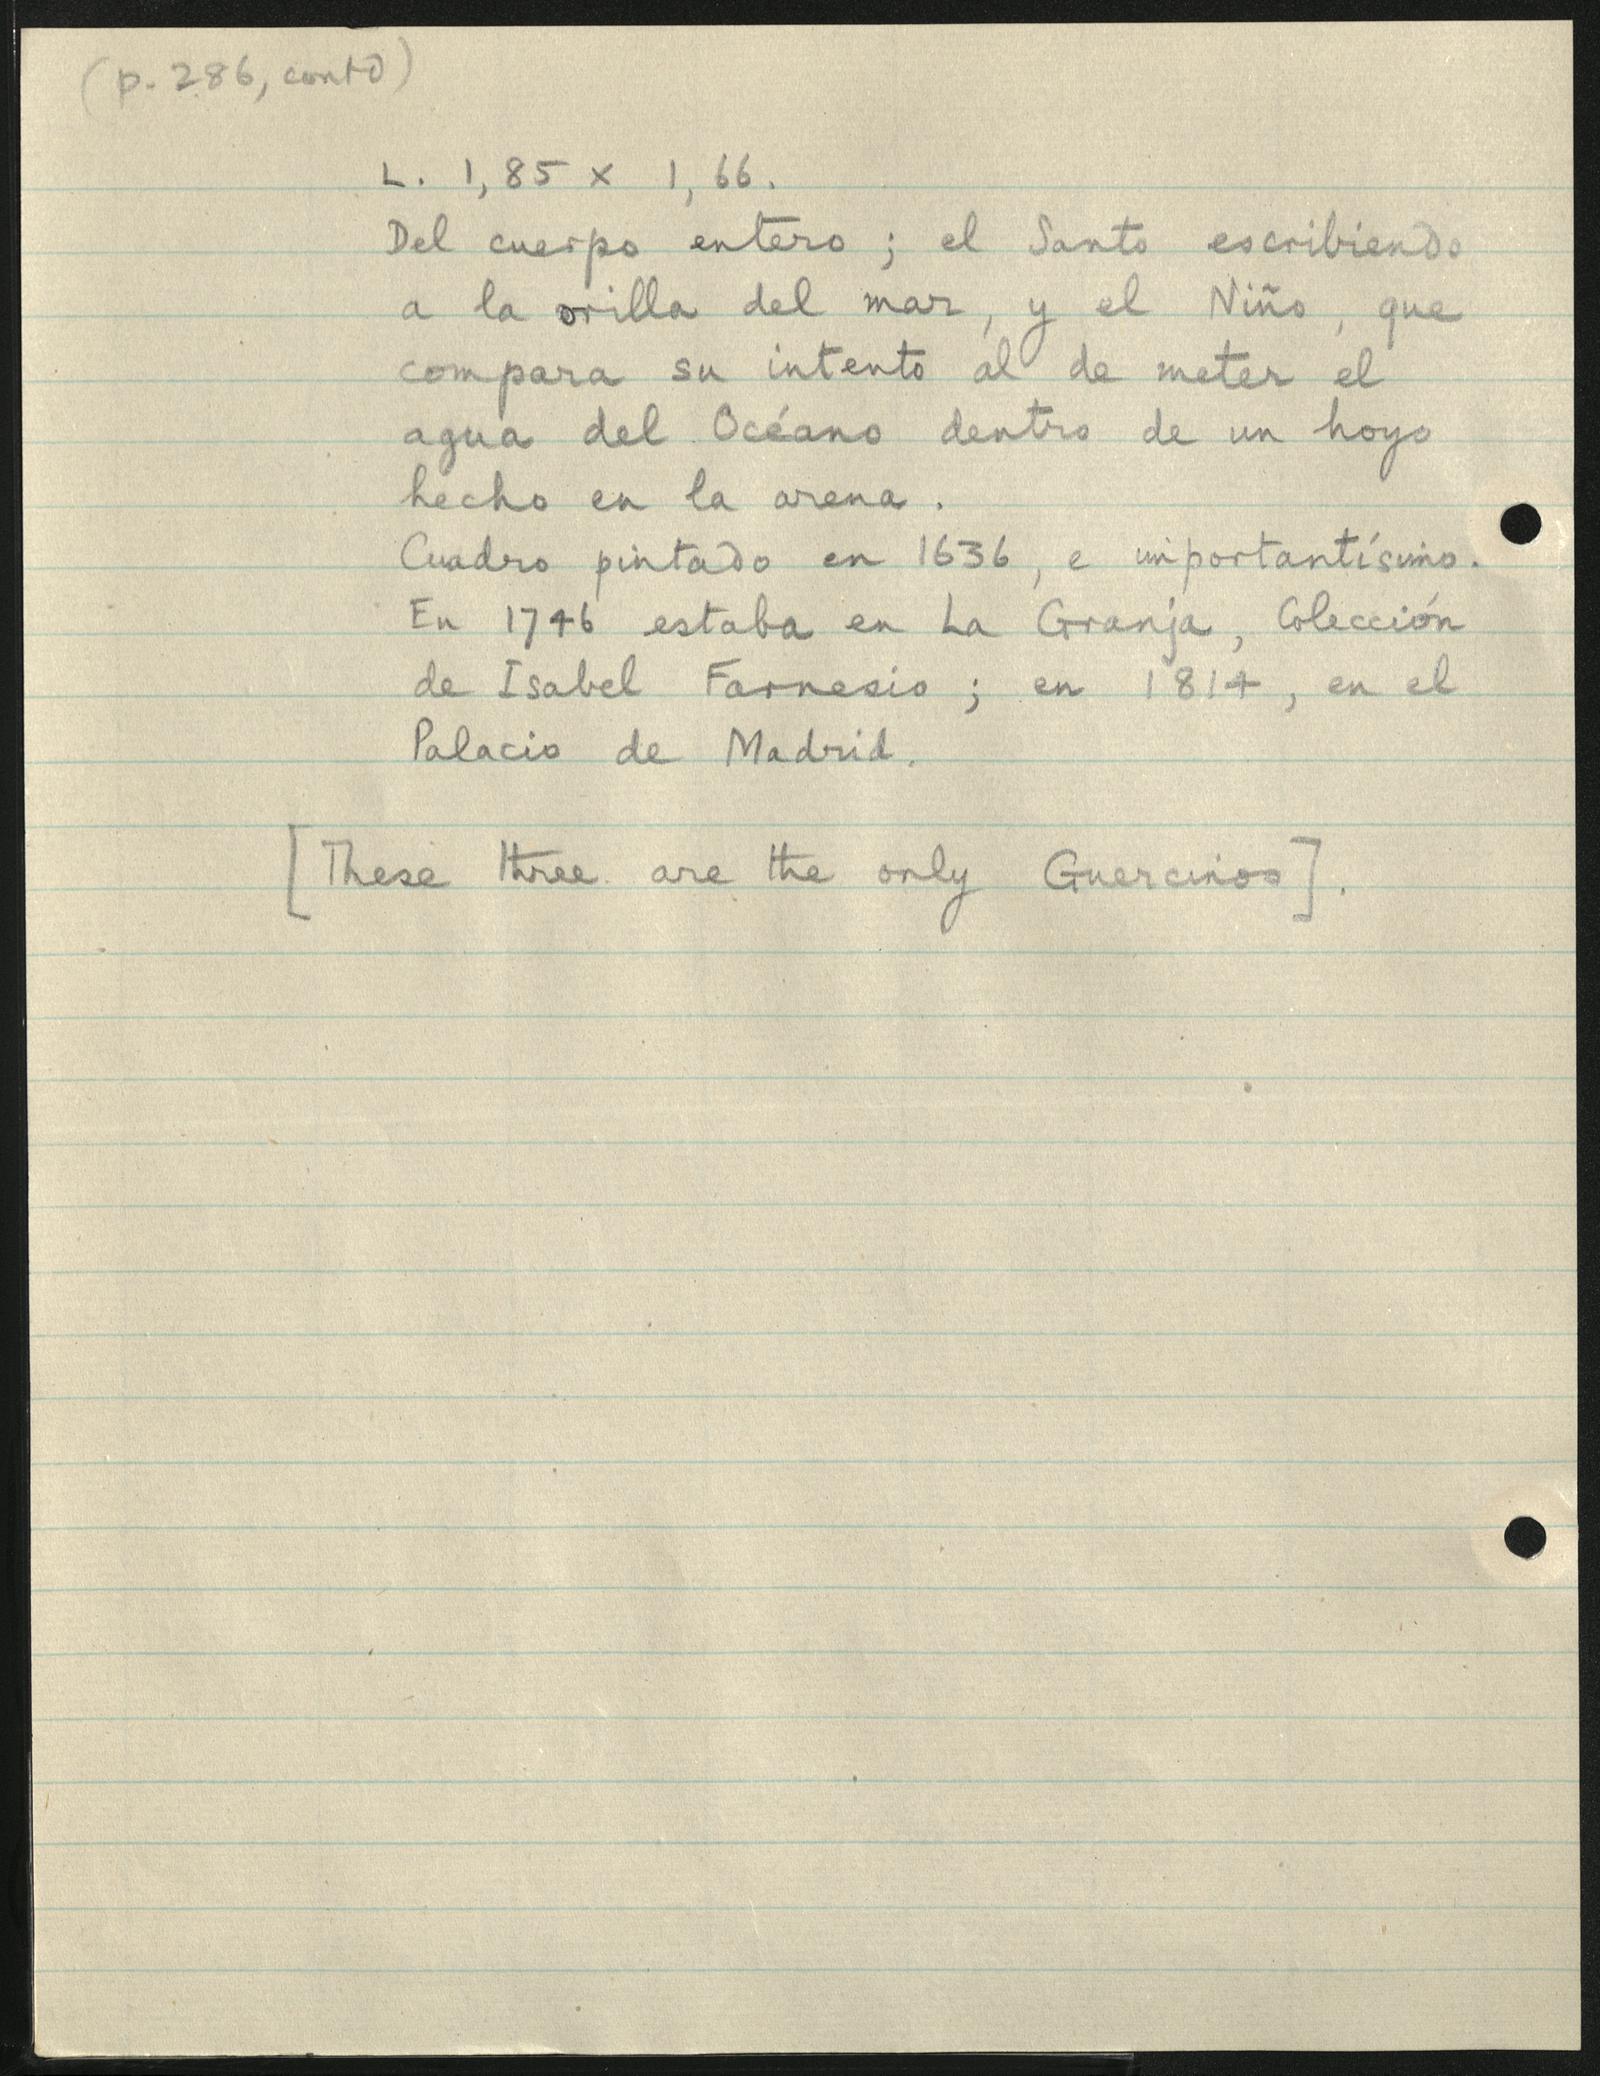 (p. 286, contd)
L. 1,85 x 1,66.
Del cuerpo entero ; el Santo escribiendo
a la orilla del mar, y el Niño, que
compara su intento al de meter el
agua del Océano dentro de un hoyo
hecho en la arena.
Cuadro pintado en 1636, e importantísimo.
En 1746 estaba en La Granja, Colección
de Isabel Farnesio ; en 1814, en el
Palacio de Madrid.
[These three are the only Guercinos].